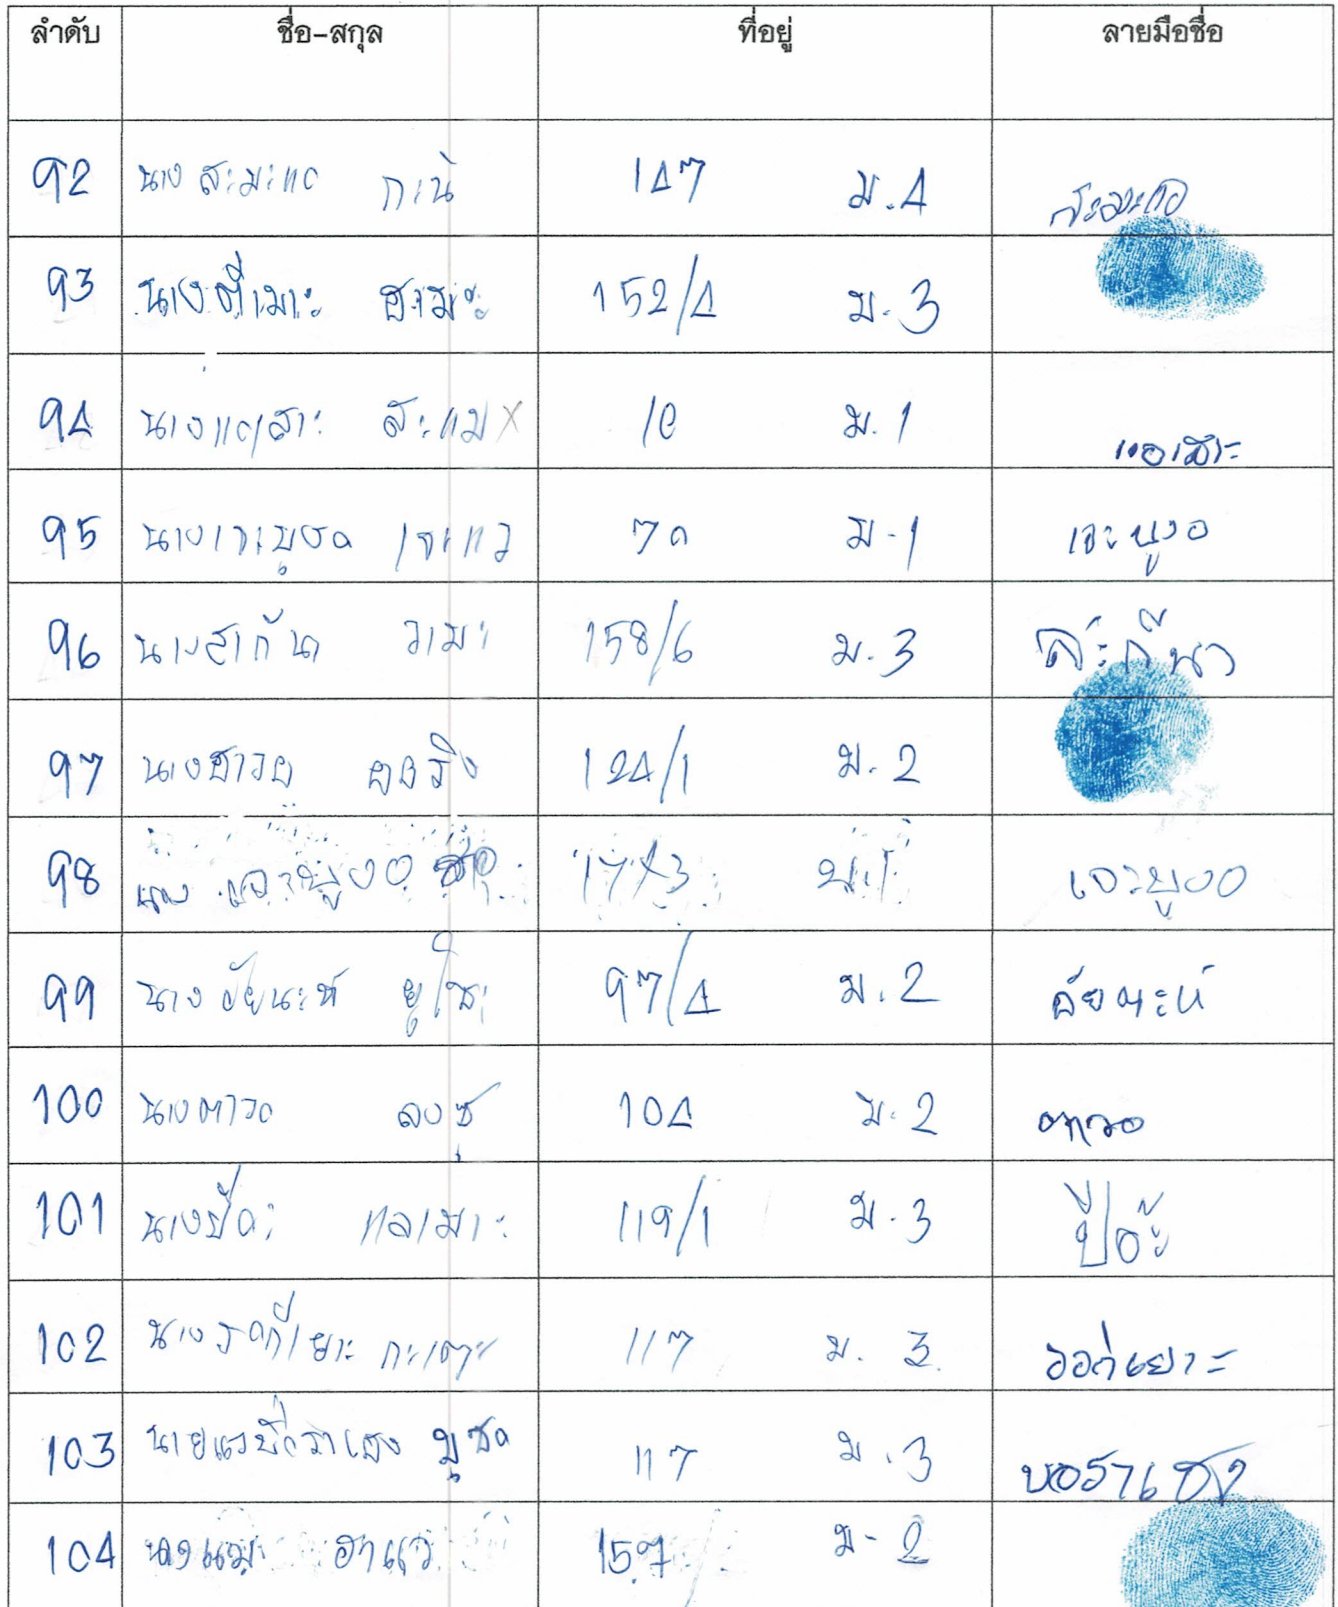 ลำดับ ชื่อ-สกุล ที่อยู่ ลายมือชื่อ
92 นาง สะมะแอ กะนิ 147 ม.4 สะมะแอ
93 นางตีเมาะ ฮามะ 152/4 ม.3
94 นางแอเสาะ สะแม 10 ม.1 แอเสาะ
95 นางเจะบูงอ เจะแว 70 ม.1 เจะบูงอ
96 นางสากีนา วามะ 158/6 ม.3 สะกีนา
97 นางฮาวอ ยือริง 124/1 ม.2
98 นาง เจะบูงอ 17/3 ม.1 เจะบูงอ
99 นาง อัยนะห์ ยูโซะ 97/4 ม.2 อัยนะห์
100 นางตาวอ ลงซุ 104 ม.2 ตาวอ
101 นางปีอะ แลเมาะ 119/1 ม.3 ปีอะ
102 นางรอกีเยาะ กะเตาะ 117 ม.3 รอกีเยาะ
103 117 ม.3
104 นางแมะ อาแว 157 ม-2